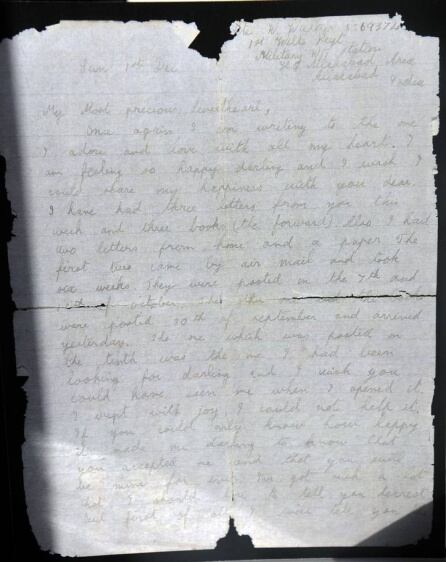 W. Walker 5
1st Wilts Regt
Military Station
Area
Sun 1st Dec India
My Most precious Sweetheart,
Once again I am writing to the one
I adore and love with all my heart. I
am feeling so happy darling and I wish I
could share my happiness with you dear.
I have had three letters from you this
week and three books (the forward). Also I had
two letters from home and a paper. The
first two came by air mail and took
six weeks. They were posted on the 7th and
of October. The
were posted 30th of september and arrived
yesterday. The one which was posted on
the tenth was the one I had been
looking for darling and I wish you
could have seen me when I opened it
I wept with joy, I could not help it.
If you could only know how happy
it made me darling to know that
you accepted me and that you will
be mine for ever. I've got such a lot
that I should to tell you dearest
but first of all I will tell you